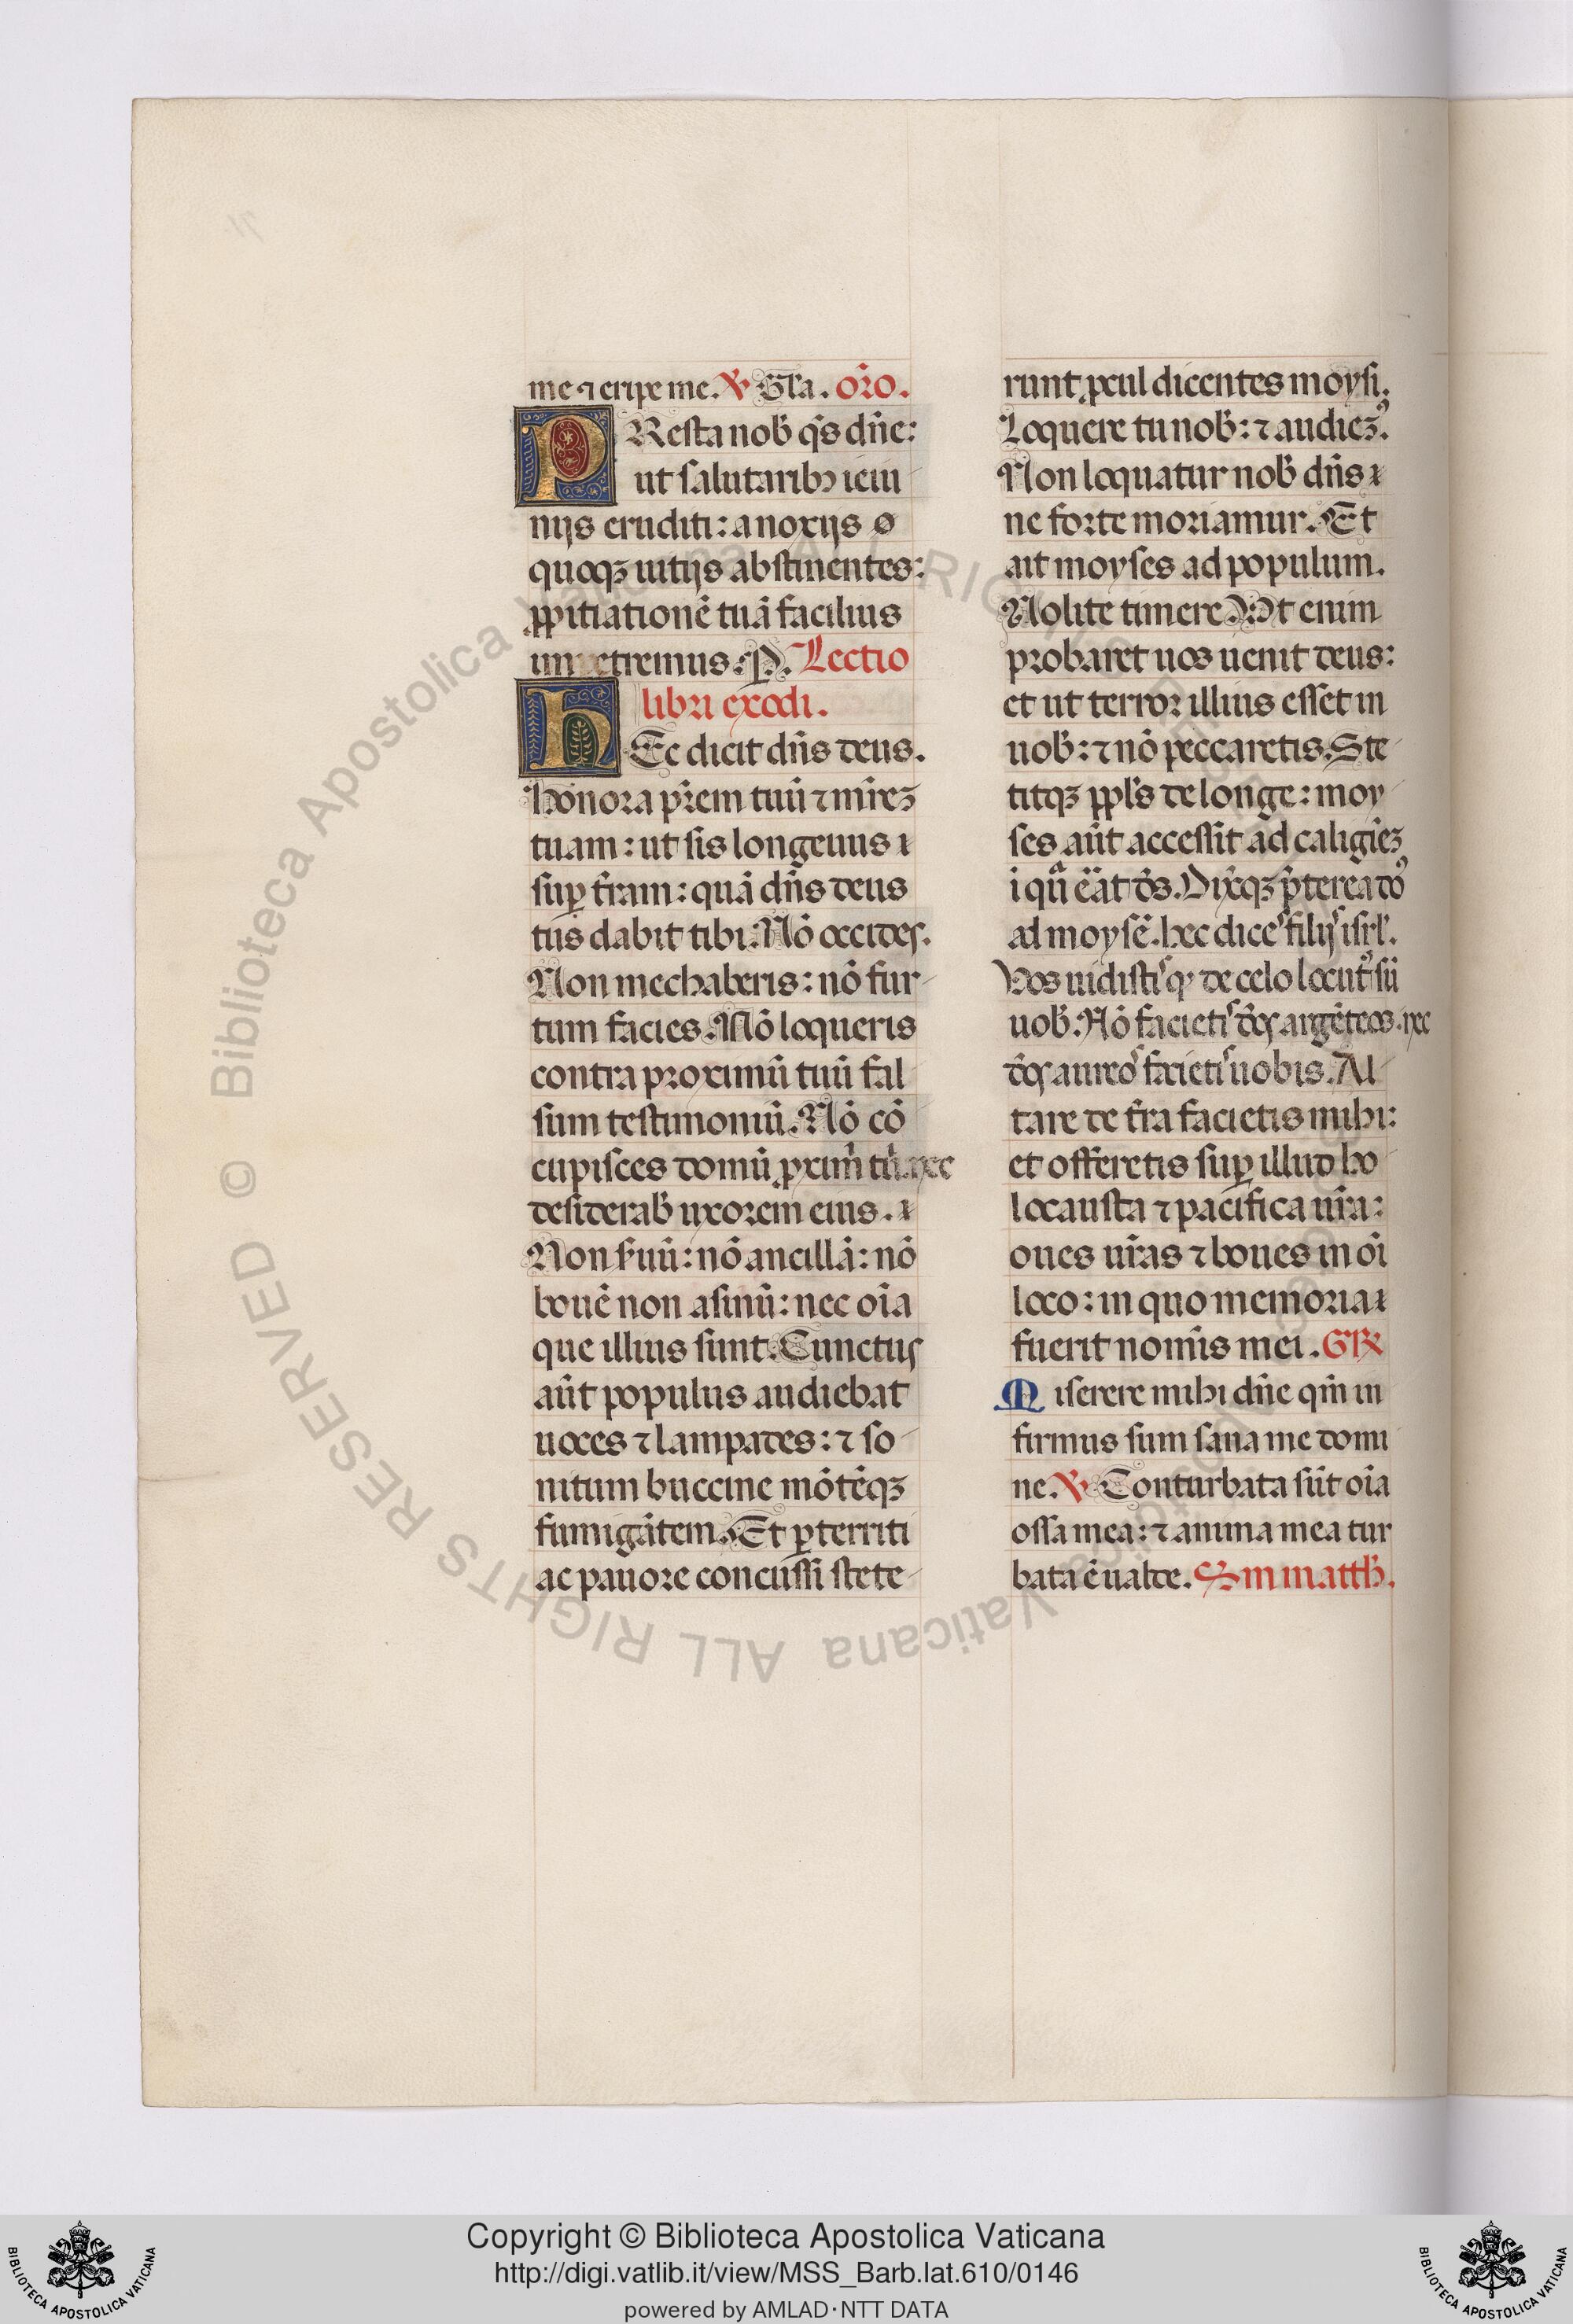 me ⁊ eripe me. ℣ Gl̃a. or̃o.
PResta nob̃ q̃s dñe:
ut salutarib⁊ ieiu
nijs eruditi: a noxijs ø
quoqꝫ uitijs abstinentes:
ꝓpitiationẽ tuã facilius
impetremus. P. Lectio
libri exodi.
HEc dicit dñs deus.
Honora pr̃em tuũ ⁊ mr̃eꝫ
tuam: ut sis longeuus
suꝑ tr̃am: quã dñs deus
tuus dabit tibi. Nõ occides.
Non mechaberis: nõ fur
tum facies. Nõ loqueris
contra proximũ tuũ fal
sum testimoniũ. Nõ cõ
cupisces domũ ꝓximi tui. nec
desiderab̃ uxorem eius.
Non s̃uũ: nõ ancillã: nõ
bouẽ non asinũ: nec oĩa
que illius sunt. Cunctus
aũt populus audiebat
uoces ⁊ lampades: ⁊ so
nitum buccine mõtẽqꝫ
fumigãtem. Et ꝑterriti
ac pauore concussi stete
runt ꝓcul dicentes moysi.
Loquere tu nob̃: ⁊ audieꝫ᾽.
Non loquatur nob̃ dñs
ne forte moriamur. Et
ait moyses ad populum.
Nolite timere. Vt enim
probaret uos uenit deus:
et ut terror illius esset in
uob̃: ⁊ nõ peccaretis. Ste
titqꝫ ppl̃s de longe: moy
ses aũt accessit ad caligieꝫ
ĩ quã erat ds̃. Dixitqꝫ p̃terea do᾽
ad moysẽ. hec dices filijs isrl̃.
Vos uidistis qꝫ de celo locut᾽ sũ
uob̃. Nõ facietis deos argẽteos. nec
deos aureos facietis uobis. Al
tare de tr̃a facietis mihi:
et offeretis suꝑ illud ho
locausta ⁊ pacifica ur̃a:
oues ur̃as ⁊ boues in oĩ
loco: in quo memoria
fuerit nomĩs mei. GR̃
Miserere mihi dñe qm̃ in
firmus sum sana me domi
ne. ℣ Conturbata sũt oĩa
ossa mea: ⁊ anima mea tur
bata ẽ ualde. Sm matth̃.
© Biblioteca Apostolica Vaticana ALL RIGHTS RESERVED
Copyright © Biblioteca Apostolica Vaticana
http://digi.vatlib.it/view/MSS_Barb.lat.610/0146
powered by AMLAD·NTT DATA
BIBLIOTECA APOSTOLICA VATICANA
BIBLIOTECA APOSTOLICA VATICANA